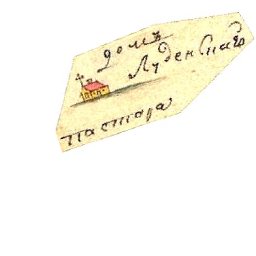 домъ
Луденскаго
пастора